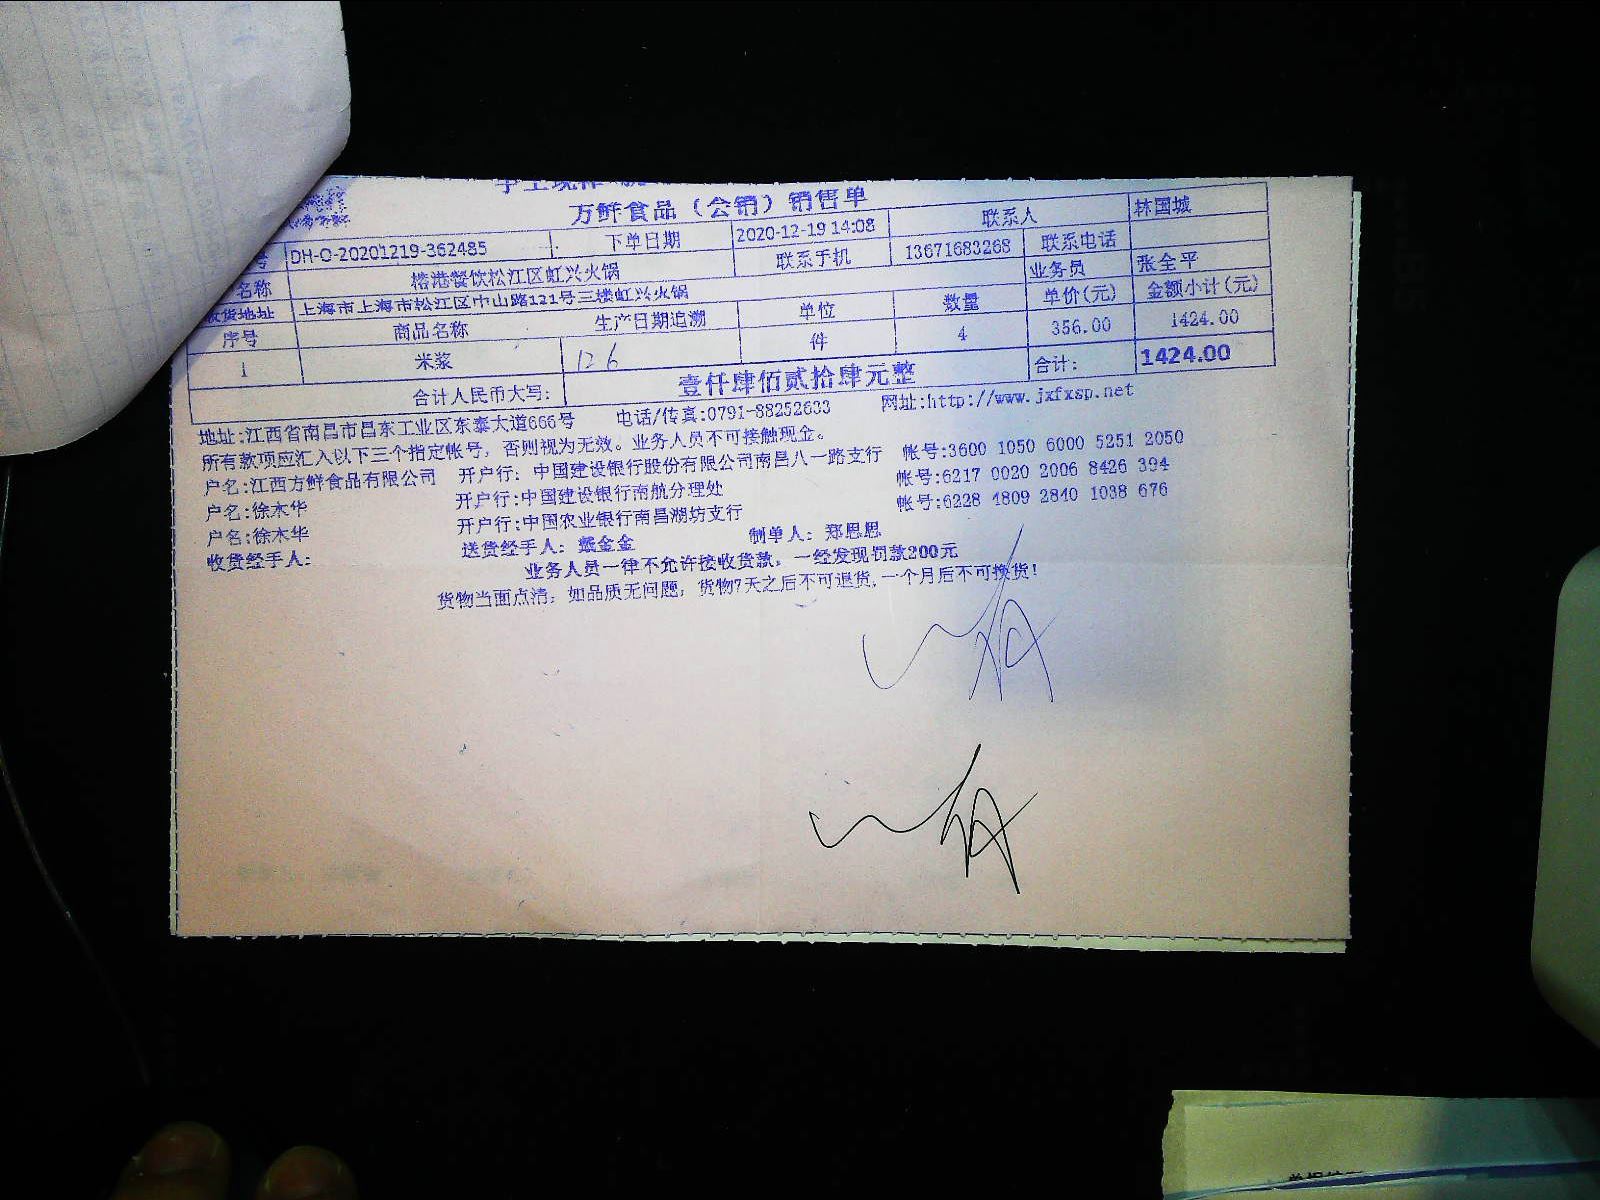 方鲜食品（公销）销售单
号 DH-O-20201219-362485 下单日期 2020-12-19 14:08 联系人 林国城
名称 榕港餐饮松江区虹兴火锅 联系手机 13671683268 联系电话
收货地址 上海市上海市松江区中山路121号三楼虹兴火锅 业务员 张全平
序号 商品名称 生产日期追溯 单位 数量 单价(元) 金额小计(元)
1 米浆 126 件 4 356.00 1424.00
合计人民币大写: 壹仟肆佰贰拾肆元整 合计: 1424.00
地址:江西省南昌市昌东工业区东泰大道666号 电话/传真:0791-88252633 网址:http://www.jxfxsp.net
所有款项应汇入以下三个指定帐号，否则视为无效。业务人员不可接触现金。
户名:江西方鲜食品有限公司 开户行: 中国建设银行股份有限公司南昌八一路支行 帐号:3600 1050 6000 5251 2050
户名:徐木华 开户行:中国建设银行南航分理处 帐号:6217 0020 2006 8426 394
户名:徐木华 开户行:中国农业银行南昌湖坊支行 帐号:6228 4809 2840 1038 676
收货经手人: 送货经手人: 戴金金 制单人: 郑思思
业务人员一律不允许接收货款，一经发现罚款200元
货物当面点清；如品质无问题，货物7天之后不可退货,一个月后不可换货!